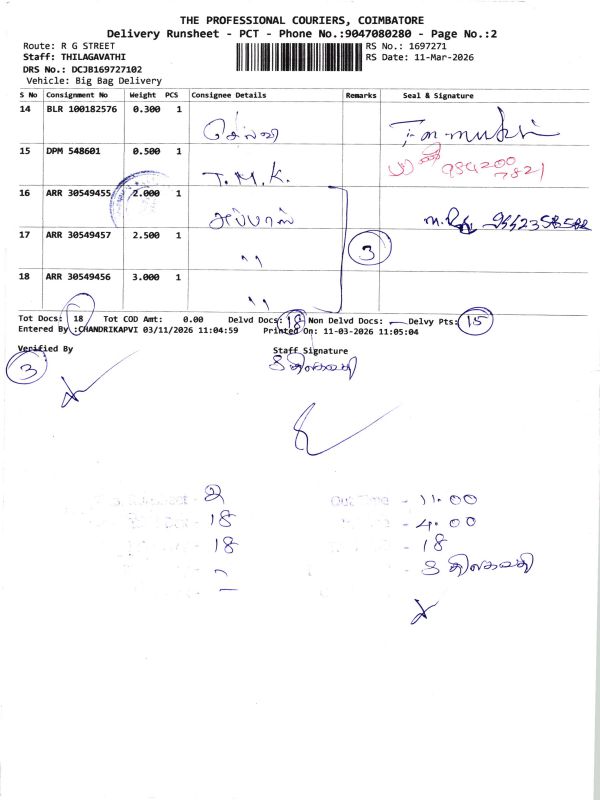 THE PROFESSIONAL COURIERS, COIMBATORE
Delivery Runsheet - PCT - Phone No.:9047080280 - Page No.:2
Route: R G STREET
RS No.: 1697271
Staff: THILAGAVATHI
RS Date: 11-Mar-2026
DRS No.: DCJB169727102
Vehicle: Big Bag Delivery
S No Consignment No Weight PCS Consignee Details Remarks Seal & Signature
14 BLR 100182576 0.300 1 செல்வி
15 DPM 548601 0.500 1 T.M.K. 984200
7821
16 ARR 30549455 2.000 1 அப்பாஸ்
17 ARR 30549457 2.500 1 " 3
18 ARR 30549456 3.000 1 "
Tot Docs: 18 Tot COD Amt: 0.00 Delvd Docs: 18 Non Delvd Docs: — Delvy Pts: 15
Entered By :CHANDRIKAPVI 03/11/2026 11:04:59 Printed On: 11-03-2026 11:05:04
Verified By Staff Signature
3 திலகவதி
2 Out Time - 11.00
18 - 4.00
18 - 18
- திலகவதி